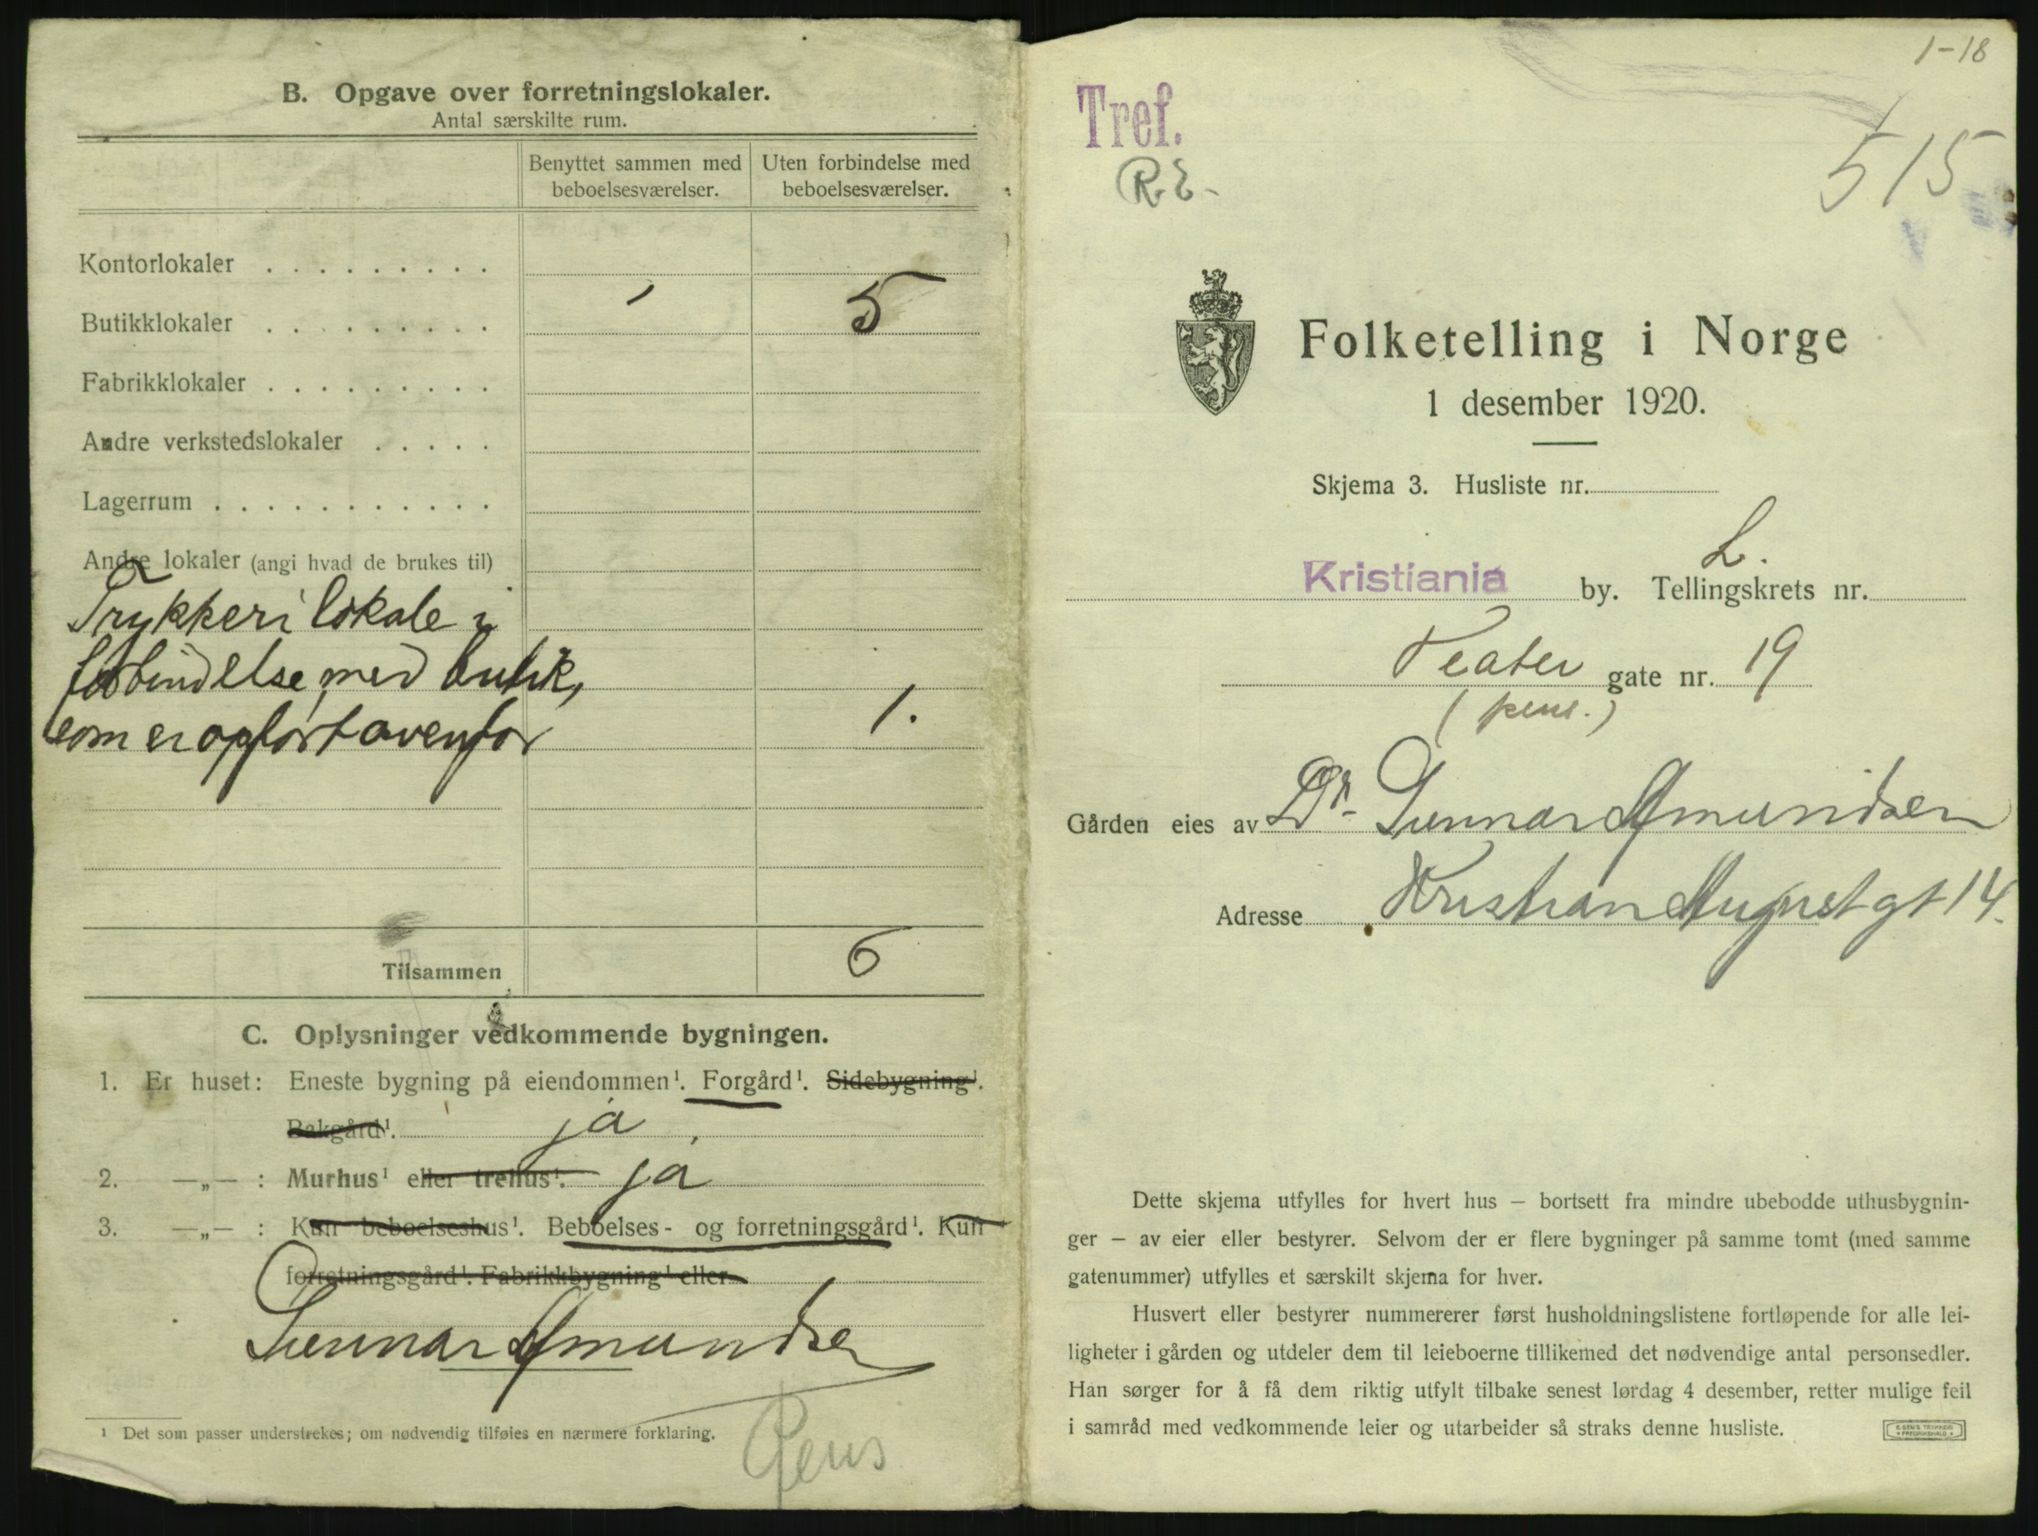 B. Opgave over forretningslokaler.
Antal særskilte rum.
Benyttet sammen med beboelsesværelser.
Uten forbindelse med beboelsesværelser.
Kontorlokaler . . . . . . . . .
Butikklokaler . . . . . . . . . 5
Fabrikklokaler . . . . . . . . .
Andre verkstedslokaler . . . . .
Lagerrum . . . . . . . . . . .
Andre lokaler (angi hvad de brukes til)
Trykkeri lokale i
forbindelse med butik,
som er opført ovenfor 1.
Tilsammen 6
C. Oplysninger vedkommende bygningen.
1. Er huset: Eneste bygning på eiendommen¹. Forgård¹. Sidebygning¹.
Bakgård¹. ja.
2. —„— : Murhus¹ eller trehus¹. ja
3. —„— : Kun beboelseshus¹. Beboelses- og forretningsgård¹. Kun
forretningsgård¹. Fabrikkbygning¹ eller
Gunnar Amundsen
¹ Det som passer understrekes; om nødvendig tilføies en nærmere forklaring.
1-18
Tref.
R.E.
515
Folketelling i Norge
1 desember 1920.
Skjema 3. Husliste nr.
Kristiania by. Tellingskrets nr. L.
Teater gate nr. 19
Gården eies av Dr. Gunnar Amundsen
Adresse Kristian August gt 14.
Dette skjema utfylles for hvert hus – bortsett fra mindre ubebodde uthusbygnin-
ger – av eier eller bestyrer. Selvom der er flere bygninger på samme tomt (med samme
gatenummer) utfylles et særskilt skjema for hver.
Husvert eller bestyrer nummererer først husholdningslistene fortløpende for alle lei-
ligheter i gården og utdeler dem til leieboerne tillikemed det nødvendige antal personsedler.
Han sørger for å få dem riktig utfylt tilbake senest lørdag 4 desember, retter mulige feil
i samråd med vedkommende leier og utarbeider så straks denne husliste.